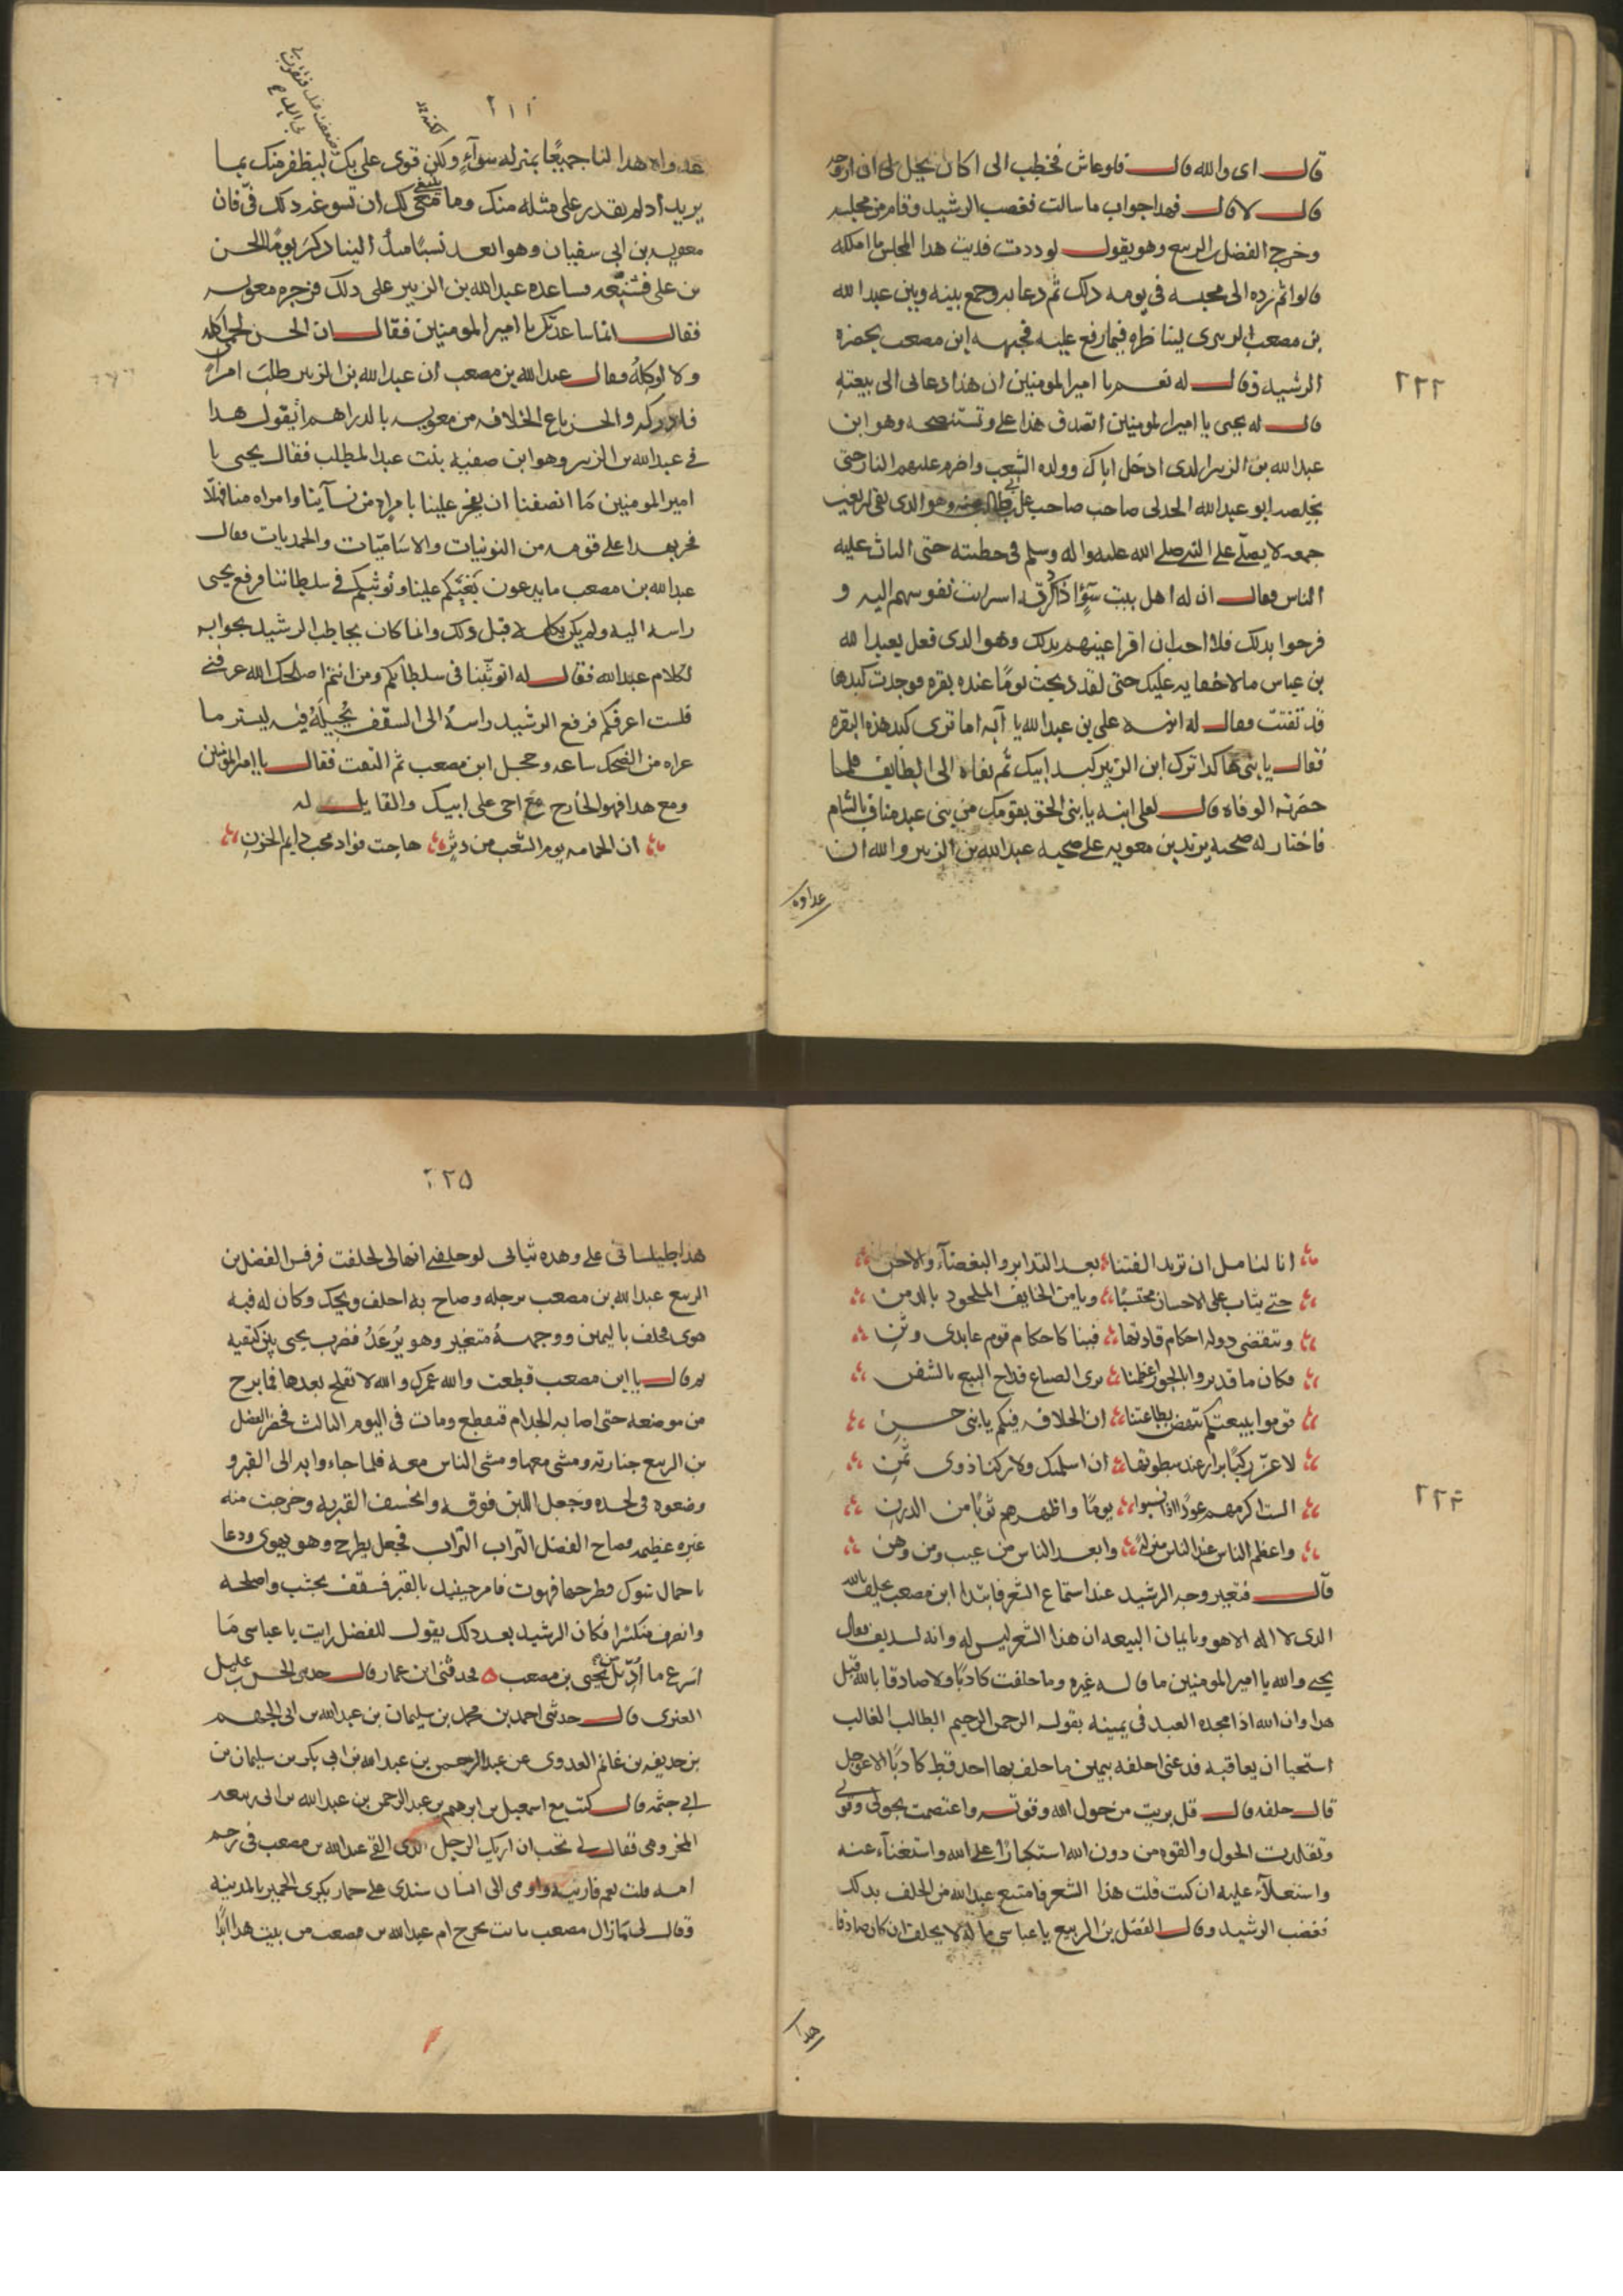 ٢٢٢
قال اى والله قال فلو عاش فخطب الى اكان يحل لى ان ازوجه
قال لا قال فهذا جواب ما سالت فغضب الرشيد وقام من مجلسه
وخرج الفضل بن الربيع وهو يقول لوددت فديت هذا المجلس ما املكه
قالوا ثم رده الى محبسه فى يومه ذلك ثم دعا به وجمع بينه وبين عبد الله
بن مصعب الزبيرى ليناظره فيما رفع عليه فجبهه ابن مصعب بحضرة
الرشيد وقال له نعم يا امير المومنين ان هذا دعانى الى بيعته
قال له يحيى يا امير المومنين اتصدق هذا على وتستنصحه وهو ابن
عبد الله بن الزبير الذى ادخل اباك وولده الشعب واضرم عليهم النار حتى
تخلصه ابو عبد الله الجدلى صاحب على بن وهو الذى بقى اربعين
جمعه لا يصلى على النبى صلى الله عليه واله وسلم فى خطبته حتى التاث عليه
الناس فقال ان له اهل بيت سوء اذا ذكرته اسرابت نفوسهم اليه و
فرحوا بذلك فلا احب ان اقر اعينهم بذلك وهو الذى فعل بعبد الله
بن عباس ما لا خفا به عليك حتى لقد ذبحت يوما عنده بقره فوجدت كبدها
قد تفتت فقال له ابنه على بن عبد الله يا ابه اما ترى كبد هذه البقره
فقال يا بنى هكذا ترك ابن الزبير كبد ابيك ثم نفاه الى الطايف فلما
حضرته الوفاه قال لعلى ابنه يا بنى الحق بقومك من بنى عبد مناف بالشام
فاختار له صحبه يزيد بن معويه على صحبه عبد الله بن الزبير والله ان
عداوه
عداوه هذا لنا جميعًا بمنزله سوآء ولكن قوى على بك ليظفر منك بما
يريد اذ لم يقدر على مثله منك وما ينبغى لك ان تسوغه ذلك فى فان
معويه بن ابى سفيان وهو ابعد نسبًا منك الينا ذكر يومًا الحسن
بن على فشتمه فساعده عبد الله بن الزبير على ذلك فزجره معويه
فقال انما ساعدتك يا امير المومنين فقال ان الحسن لحمى اكله
ولا اوكله فقال عبد الله بن مصعب ان عبد الله بن الزبير طلب امرا
فادركه والحسن باع الخلافه من معويه بالدراهم اتقول هذا
فى عبد الله بن الزبير وهو ابن صفيه بنت عبد المطلب فقال يحيى يا
امير المومنين ما انصفنا ان يفخر علينا بامراه من نسآينا وامراه منا فهلا
فخر بهذا على قومه من النوبيات والاساميات والحمديات فقال
عبد الله بن مصعب ما تدعون بغيكم علينا وتوثبكم فى سلطاننا فرفع يحيى
راسه اليه ولم يكن يكلمه قبل ذلك وانما كان يخاطب الرشيد بجوابه
لكلام عبد الله فقال له اتوثبنا فى سلطانكم ومن انتم اصلحك الله عرفنى
فلست اعرفكم فرفع الرشيد راسه الى السقف يجيله فيه ليستر ما
عراه من الضحك ساعه وخجل ابن مصعب ثم التفت فقال يا امير المومنين
ومع هذا فهو الخارج مع اخى على ابيك والقايل له
ان الحمامه يوم الشعب من دثن هاجت فواد محب دايم الحزن
٢٢٤
انا لنامل ان ترتد الفتنا بعد التدابر والبغضآء والاحن
حتى يثاب على الاحسان محتسبًا ويامن الخايف الماخود بالدمن
وتنقضى دوله احكام قادتها فينا كاحكام قوم عابدى وثن
فكان ما قد بروا بالجور اعظمنا برى الصناع قداح النبع بالسفن
قوموا ببيعتكم ننهض بطاعتنا ان الخلافه فيكم يا بنى حسن
لا عز ركنا نزار عند سطوتها ان اسلمك ولا ركنا ذوى يمن
الست اكرمهم عودًا اذا انتسبوا يومًا واطهرهم ثوبًا من الدرن
واعظم الناس عند الناس منزله وابعد الناس من عيب ومن وهن
قال فتغير وجه الرشيد عند استماع الشعر فابتدا ابن مصعب يحلف بالله
الذى لا اله الا هو وبايمان البيعه ان هذا الشعر ليس له وانه لسديف فقال
يحيى والله يا امير المومنين ما قاله غيره وما حلفت كاذبًا ولا صادقا بالله قبل
هذا وان الله اذا مجده العبد فى يمينه بقوله الرحمن الرحيم الطالب الغالب
استحيا ان يعاقبه فدعنى احلفه بيمين ما حلف بها احد قط كاذبًا الا عوجل
قال حلفه قال قل بريت من حول الله وقوته واعتصمت بحولى وقوتى
وتقلدت الحول والقوه من دون الله استكبارًا على الله واستغنآء عنه
واستعلآء عليه ان كنت قلت هذا الشعر فامتنع عبد الله من الحلف بذلك
فغضب الرشيد وقال للفضل بن الربيع يا عباسى ما له لا يحلف ان كان صادقا
هذا
٢٢٥
هذا طيلسانى على وهذه ثيابى لو حلفنى انها لى لحلفت فرفس الفضل بن
الربيع عبد الله بن مصعب برجله وصاح به احلف ويحك وكان له فيه
هوى فحلف باليمين ووجهه متغير وهو يرعد فضرب يحيى بين كتفيه
ثم قال يا ابن مصعب قطعت والله عمرك والله لا تفلح بعدها فما برح
من موضعه حتى اصابه الجذام فتقطع ومات فى اليوم الثالث فحضر الفضل
بن الربيع جنازته ومشى معها ومشى الناس معه فلما جاءوا به الى القبر و
وضعوه فى لحده وجعل اللبن فوقه وانخسف القبر به وخرجت منه
غبره عظيمه فصاح الفضل التراب التراب فجعل يطرح وهو يهوى ودعا
باحمال شوك فطرحها فهوت فامر حينيذ بالقبر فسقف بخشب واصلحه
وانصرف منكسرا فكان الرشيد بعد ذلك يقول للفضل رايت يا عباسى ما
اسرع ما اديل يحيى من بن مصعب فحدثنى ابن عمار قال حدثنى الحسن بن عليل
العنزى قال حدثنى احمد بن محمد بن سليمان بن عبد الله بن ابى الجهم
بن حذيفه بن غانم العدوى عن عبد الرحمن بن عبد الله بن ابى بكر بن سليمان بن
ابى حثمه قال كنت مع اسمعيل بن ابرهيم بن عبد الرحمن بن عبد الله بن ابى ربيعه
المخزومى فقال لى تحب ان اريك الرجل الذى القى عبد الله بن مصعب فى رحم
امه قلت نعم فارنيه واومى الى انسان سندى على حمار يكرى الحمير بالمدينه
وقال لى ما زال مصعب بن ثابت يخرج ام عبد الله بن مصعب من بيت هذا ابدًا